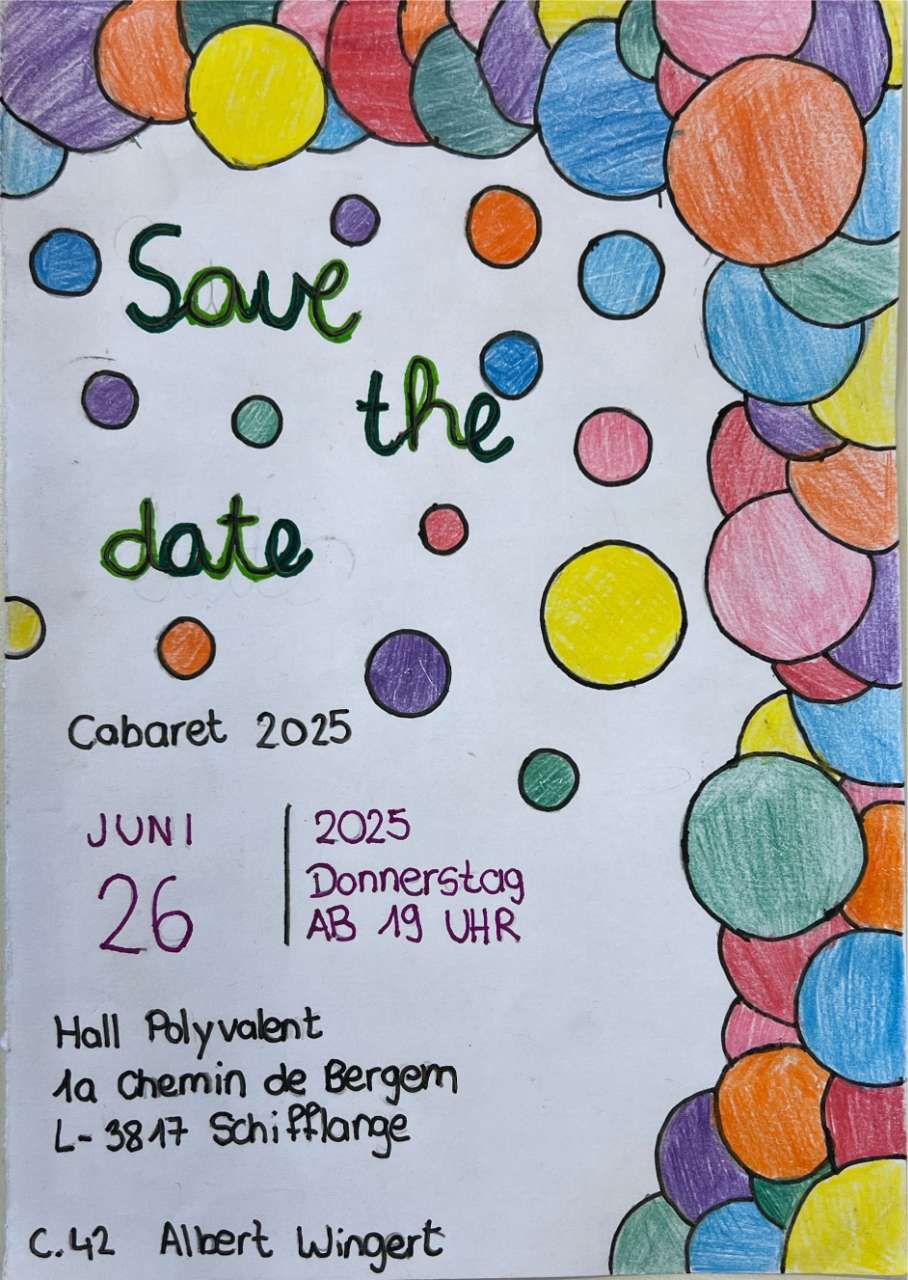 Save
the
date
Cabaret 2025
JUNI
26
2025
Donnerstag
AB 19 UHR
Hall Polyvalent
1a Chemin de Bergem
L-3817 Schifflange
C.42 Albert Wingert